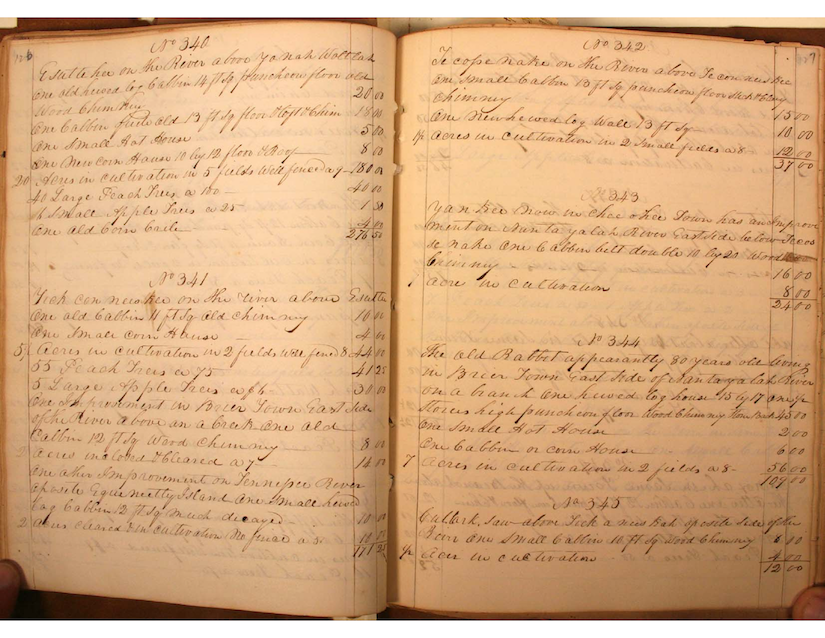 126
No 340
Esutlehee on the River above Yonah Wattlah
One old hewed log Cabbin 14 ft Sq puncheon floor old
Wood Chimney 20 00
One Cabbin 13 ft Sq floor & loft & Chim 18 00
One Small Hot House 5 00
One New Corn House 10 by 12 floor & Roof 8 00
20 Acres in cultivation in 5 fields Well fenced a 9 — 180 00
40 Large Peach Trees a 100 — 40 00
6 Small Apple Trees a 25 — 1 50
One Old Corn 4 00
276 50
No 341
on the river above
One old Cabbin 11 ft Sq old Chimney 10 00
One Small corn House 4 00
5½ Acres in cultivation in 2 fields Well fenced 8 44 00
55 Peach Trees a 75 — 41 25
5 Large Apple Trees a $6 — 30 00
One Improvement in Brier Town East Side
of the River above on a Creek One old
Cabbin 12 ft Sq Wood Chimney 8 00
2 Acres inclosed & Cleared a 7 — 14 00
One other Improvement on Tennessee River
oposite Island One Small hewed
log Cabbin 12 ft Sq Much decayed 10 00
2 Acres Cleared & in Cultivation No fence a 5 — 10 00
171 25
127
No 342
Te cose nake on the River above
One Small Cabbin 13 ft Sq puncheon floor
Chimney 15 00
One New hewed log Wall 13 ft Sq 10 00
Acres in cultivation in 2 Small fields a 8 — 12 00
37 00
No 343
Yan kee Now in Chee ohee Town has an Improve
ment on Nanta yalah River East Side below Tecos
se nake One Cabbin bilt double 10 by 20 Wood
Chimney 16 00
1 Acre in cultivation 8 00
24 00
No 344
The Old Rabbot appearantly 80 years old living
in Brier Town East Side of Nanta yalah River
on a branch One hewed log house 15 by 17 one ½
Stories high puncheon floor Wood Chimney 45 00
One Small Hot House 2 00
One Cabbin or corn House 6 00
7 Acres in cultivation in 2 fields a 8 — 56 00
109 00
No 345
above oposite Side of the
River One Small Cabbin 10 ft Sq Wood Chimney 8 00
½ Acre in cultivation 4 00
12 00